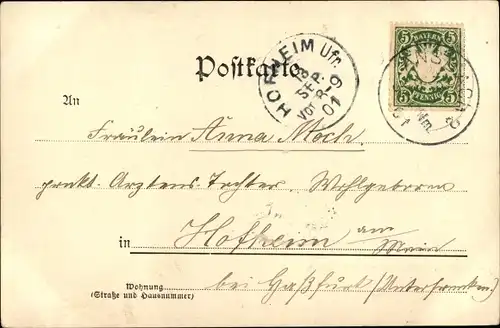 HOFHEIM Ufr.
13
SEP.
Vor. 8-9
01
BAYERN
5 5
5 PFENNIG 5
Nm.
Postkarte
An
Fräulein Anna Moch
prakt. Arztens Tochter, Wohlgeboren
in Hofheim am Main
Wohnung
(Straße und Hausnummer)
bei Haßfurt (Unterfranken)